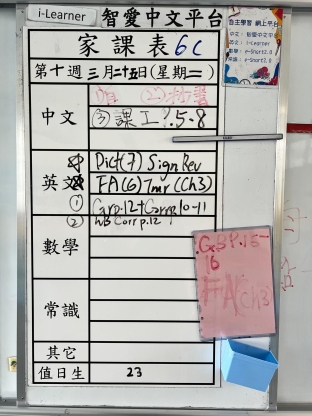 i-Learner 智愛中文平台
自主學習 網上平台
中文: 智愛中文平
英文: i-Learner
數學: e-Smart2.0
常識: e-Smart2.0
家課表 6C
第十週 三月二十五日(星期二)
中文
③ 課工 P.5-8
英文
Dict(7) Sign Rev
FA(6) Tmr (Ch3)
① Gp.12+Corr p.10-11
② WB Corr p.12
數學
常識
其它
值日生 23
GB P.15-
16
FA(Ch3)